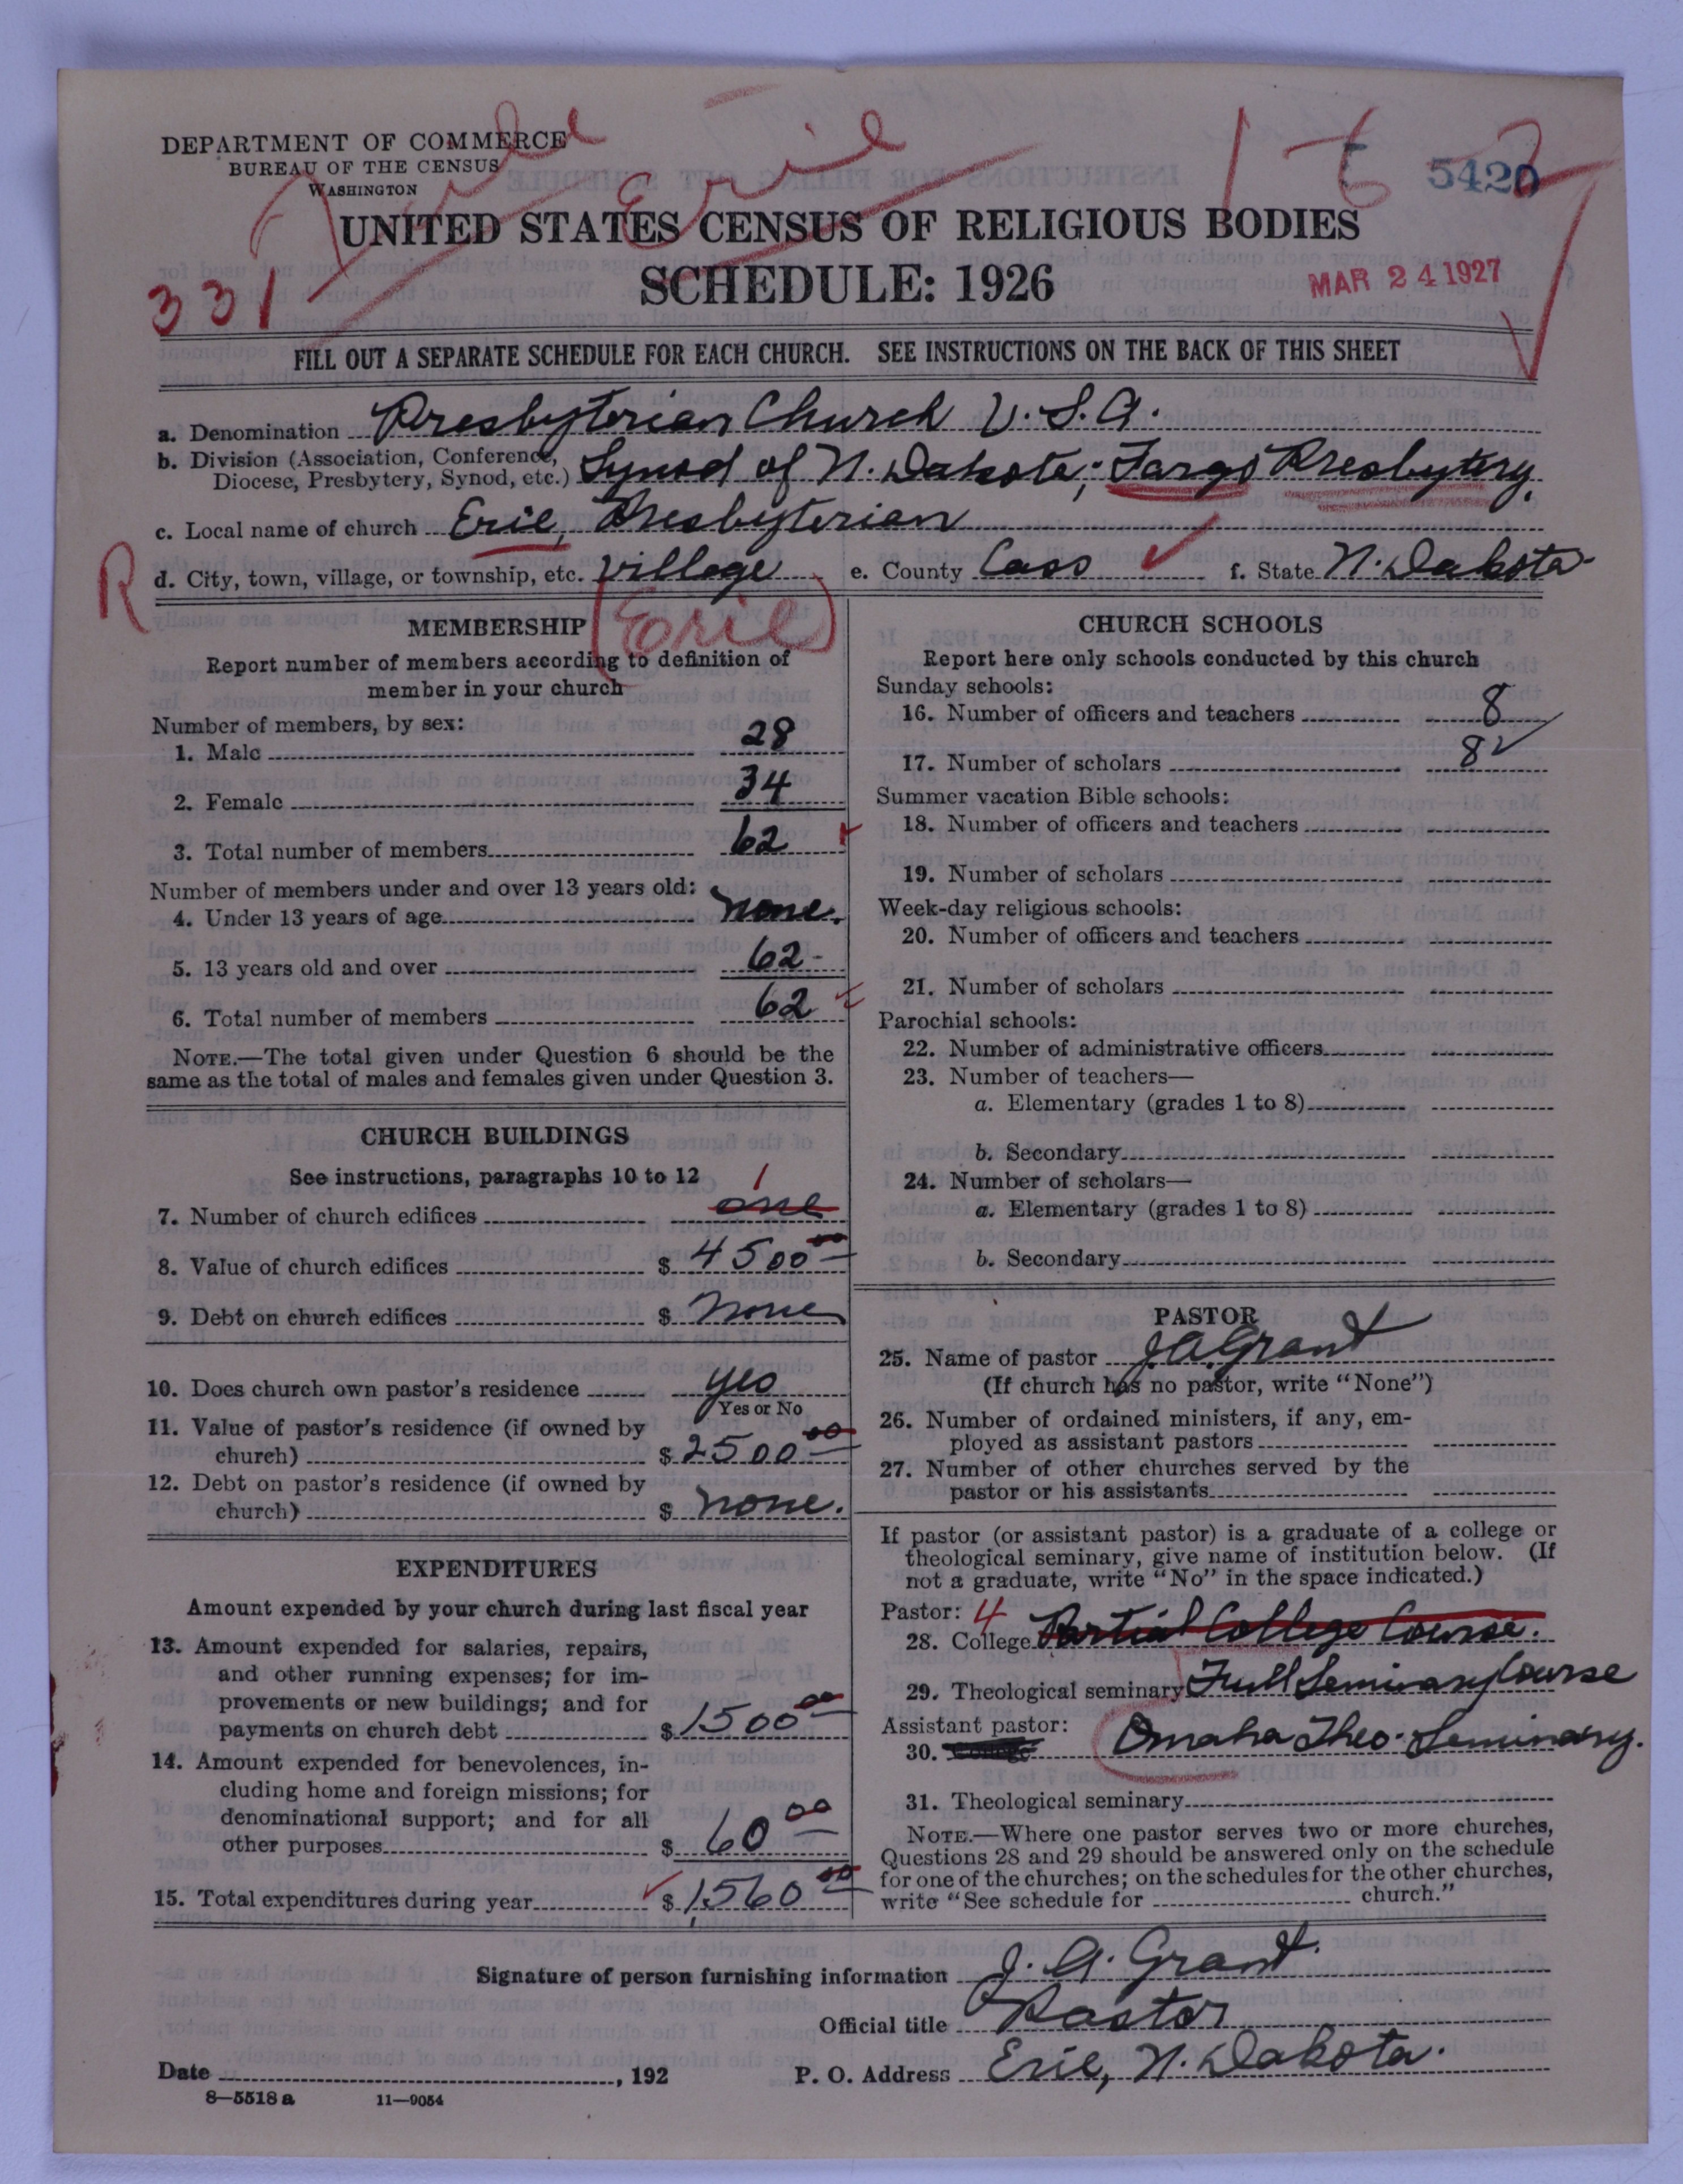 DEPARTMENT OF COMMERCE
BUREAU OF THE CENSUS
WASHINGTON
Erie
5420
UNITED STATES CENSUS OF RELIGIOUS BODIES
SCHEDULE: 1926
331
MAR 24 1927
FILL OUT A SEPARATE SCHEDULE FOR EACH CHURCH. SEE INSTRUCTIONS ON THE BACK OF THIS SHEET
a. Denomination Presbyterian Church U.S.A.
b. Division (Association, Conference, Diocese, Presbytery, Synod, etc.) Synod of N. Dakota; Fargo Presbytery.
c. Local name of church Erie, Presbyterian
R
d. City, town, village, or township, etc. village e. County Cass f. State N. Dakota
(Erie)
MEMBERSHIP
Report number of members according to definition of
member in your church
Number of members, by sex:
1. Male 28
2. Female 34
3. Total number of members 62
Number of members under and over 13 years old:
4. Under 13 years of age none.
5. 13 years old and over 62
6. Total number of members 62
NOTE.—The total given under Question 6 should be the
same as the total of males and females given under Question 3.
CHURCH BUILDINGS
See instructions, paragraphs 10 to 12
7. Number of church edifices one 1
8. Value of church edifices $ 4500 00
9. Debt on church edifices $ none
10. Does church own pastor's residence yes
Yes or No
11. Value of pastor's residence (if owned by
church) $ 2500 00
12. Debt on pastor's residence (if owned by
church) $ none.
EXPENDITURES
Amount expended by your church during last fiscal year
13. Amount expended for salaries, repairs,
and other running expenses; for im-
provements or new buildings; and for
payments on church debt $ 1500 00
14. Amount expended for benevolences, in-
cluding home and foreign missions; for
denominational support; and for all
other purposes $ 60 00
15. Total expenditures during year $ 1560 00
CHURCH SCHOOLS
Report here only schools conducted by this church
Sunday schools:
16. Number of officers and teachers 8
17. Number of scholars
Summer vacation Bible schools:
18. Number of officers and teachers
19. Number of scholars
Week-day religious schools:
20. Number of officers and teachers
21. Number of scholars
Parochial schools:
22. Number of administrative officers
23. Number of teachers—
a. Elementary (grades 1 to 8)
b. Secondary
24. Number of scholars—
a. Elementary (grades 1 to 8)
b. Secondary
PASTOR
25. Name of pastor J A Grant
(If church has no pastor, write "None")
26. Number of ordained ministers, if any, em-
ployed as assistant pastors
27. Number of other churches served by the
pastor or his assistants
If pastor (or assistant pastor) is a graduate of a college or
theological seminary, give name of institution below. (If
not a graduate, write "No" in the space indicated.)
Pastor: 4
28. College Partial College Course.
29. Theological seminary Full Seminary Course
Assistant pastor:
30. College Omaha Theo. Seminary.
31. Theological seminary
NOTE.—Where one pastor serves two or more churches,
Questions 28 and 29 should be answered only on the schedule
for one of the churches; on the schedules for the other churches,
write "See schedule for church."
Signature of person furnishing information J. A. Grant.
Official title Pastor
Date , 192 P. O. Address Erie, N. Dakota.
8—5518 a 11—9054